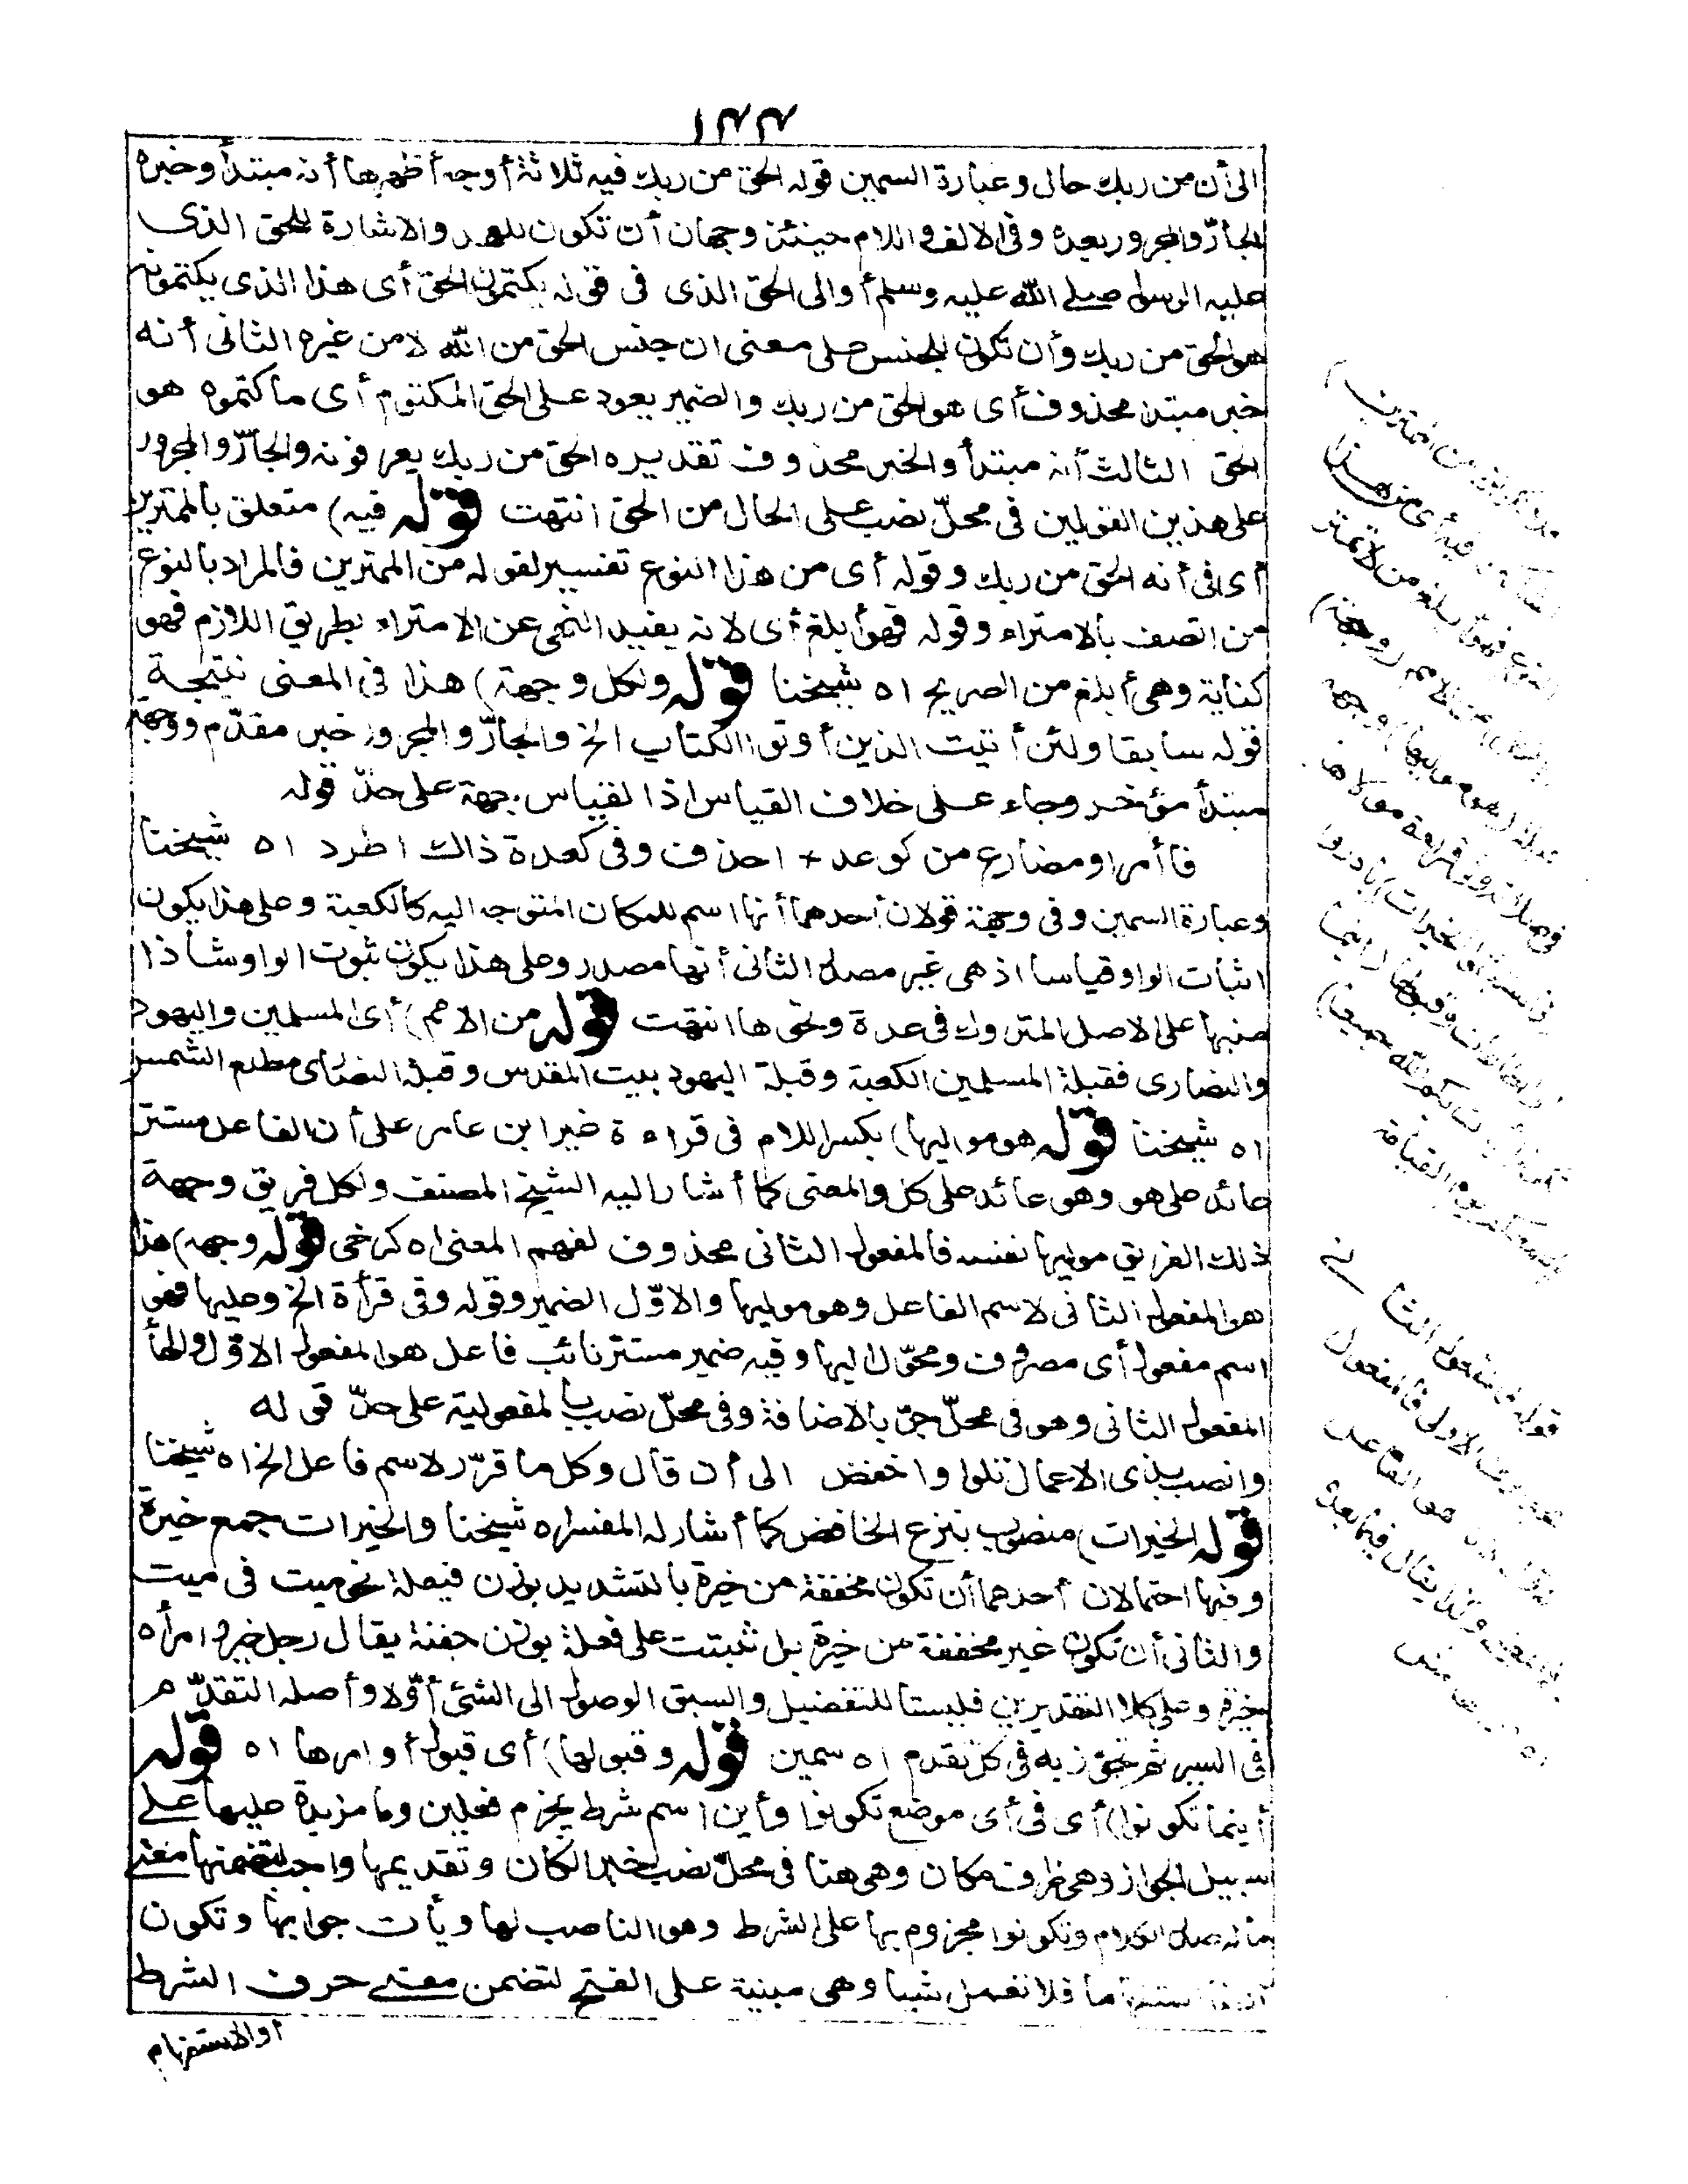 ١٣٣
الى أن من ربك حال وعبارة السمين قوله الحق من ربك فيه ثلاثة أوجه أظهرها أنه مبتدأ وخبره
الجارّ والمجرور بعده وفى الالف واللام حينئذ وجهان أن تكون للعهد والاشارة للحق الذى
عليه الرسول صلى الله عليه وسلم أوالى الحق الذى فى قوله يكتمون الحق أى هذا الذى يكتمونه
هو الحق من ربك وأن تكون للجنس على معنى ان جنس الحق من الله لا من غيره الثانى أنه
خبر مبتدئ محذوف أى هو الحق من ربك والضمير يعود على الحق المكتوم أى ما كتموه هو
الحق الثالث أنه مبتدأ والخبر محذوف تقديره الحق من ربك يعرفونه والجارّ والمجرور
على هذين القولين فى محلّ نصب على الحال من الحق انتهت قوله فيه) متعلق بالممترين
أى فى أنه الحق من ربك وقوله أى من هذا النوع تفسير لقوله من الممترين فالمراد بالنوع
من اتصف بالامتراء وقوله فهو أبلغ أى لانه يفيد النهى عن الامتراء بطريق اللازم فهو
كناية وهى أبلغ من الصريح اه شيخنا قوله ولكل وجهة) هذا فى المعنى نتيجة
قوله سابقا ولئن أتيت الذين أوتوا الكتاب الخ والجارّ والمجرور خبر مقدّم ووجهة
مبتدأ مؤخر وجاء على خلاف القياس اذ القياس جهة على حدّ قوله
فا أمر او مضارع من كوعد + احذف وفى كعدة ذاك اطرد اه شيخنا
وعبارة السمين وفى وجهة قولان أحدهما أنها اسم للمكان المتوجه اليه كالكعبة وعلى هذا يكون
اثبات الواو قياسا اذ هى غير مصدر الثانى أنها مصدر وعلى هذا يكون ثبوت الواو شاذا
منبها على الاصل المتروك فى عدة ونحوها انتهت قوله من الامم) أى المسلمين واليهود
والنصارى فقبلة المسلمين الكعبة وقبلة اليهود بيت المقدس وقبلة النصارى مطلع الشمس
اه شيخنا قوله هو موليها) بكسر اللام فى قراءة غير ابن عامر على أن الفاعل مستتر
عائد على هو وهو عائد على كل والمعنى كما أشار اليه الشيخ المصنف ولكل فريق وجهة
ذلك الفريق موليها نفسه فالمفعول الثانى محذوف لفهم المعنى اه كرخى قوله وجهه) هذا
هو المفعول الثانى لاسم الفاعل وهو موليها والاوّل الضمير وقوله وفى قرأة الخ وعليها فهو
اسم مفعول أى مصروف ومحوّل اليها وفيه ضمير مستتر نائب فاعل هو المفعول الاوّل والهاء
المفعول الثانى وهو فى محلّ جرّ بالاضافة وفى محلّ نصب بالمفعولية على حدّ قوله
وانصب بذى الاعمال تلوا واخفض الى أن قال وكل ما قرّر لاسم فاعل الخ اه شيخنا
قوله الخيرات) منصوب بنزع الخافض كما أشار له المفسر اه شيخنا والخيرات جمع خيرة
وفيها احتمالان أحدهما أن تكون مخففة من خيرة بالتشديد بوزن فيعلة نحو ميت فى ميت
والثانى أن تكون غير مخففة من خيرة بل ثبتت على فعلة بوزن جفنة يقال رجل خير وامرأة
خيرة وعلى كلا التقديرين فليستا للتفضيل والسبق الوصول الى الشئ أوّلا وأصله التقدّم
فى السير ثم تجوّز به فى كل تقدم اه سمين قوله وقبولها) أى قبول أوامرها اه قوله
أينما تكونوا) أى فى أى موضع تكونوا وأين اسم شرط يجزم فعلين وما مزيدة عليها على
سبيل الجواز وهى ظرف مكان وهى هنا فى محلّ نصب خبر الكان وتقديمها واجب لتضمنها معنى
ما له صدر الكلام وتكونوا مجزوم بها على الشرط وهو الناصب لها ويأت جوابها وتكون
ما فلا تعمل شيا وهى مبنية على الفتح لتضمن معنى حرف الشرط
أو الاستفهام
من الممترين)
من هذا
أبلغ من لا تمتر
الامم (وجهة)
موليها) وجهه
وفى قراءة مولاها
الخيرات) بادروا
وقبولها (أينما
الله جميعا)
يوم القيامة
قوله المفعول الثانى
الاول فالمفعول
هو الفاعل
يقال فيما بعده
منه